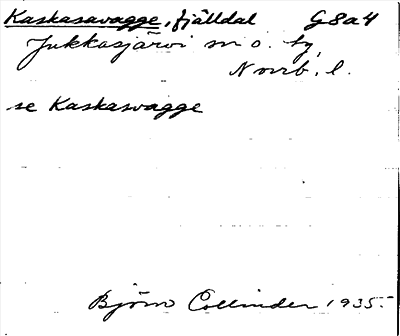 Kaskasavagge, fjälldal G8a4
Jukkasjärvi sn o. tg,
Norrb. l.
se Kaskasvagge
Björn Collinder 1935.